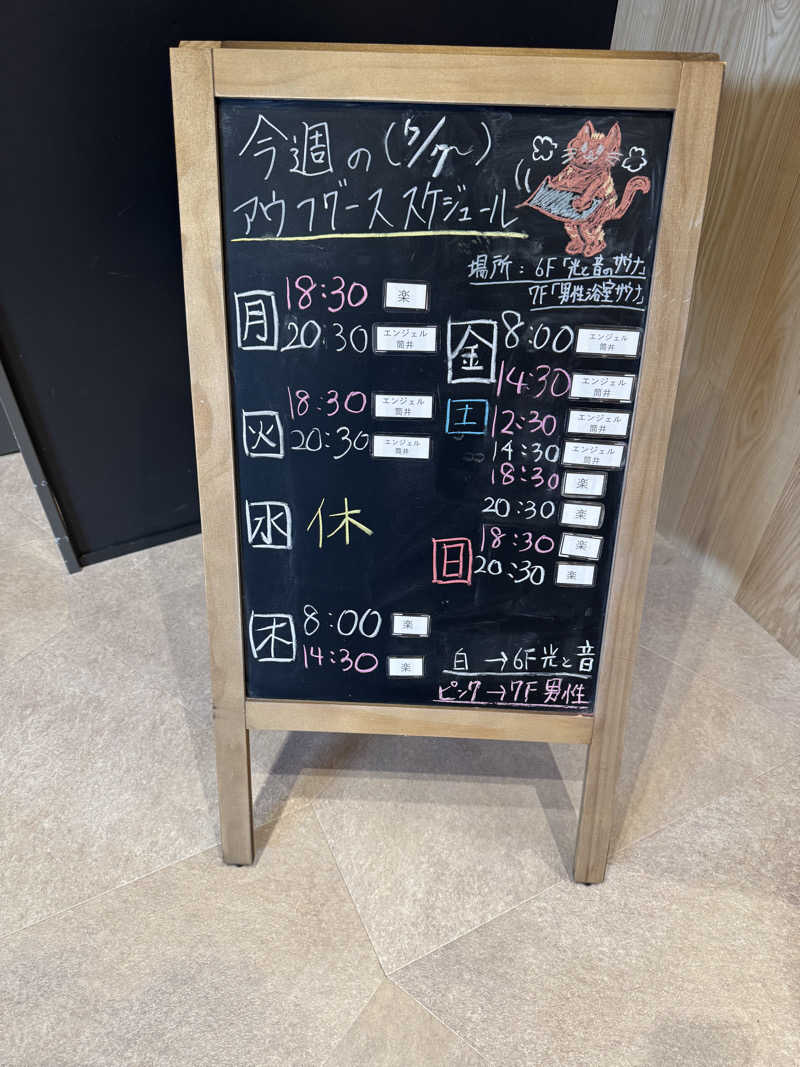 今週の(7/7〜)
アウフグーススケジュール
場所：6F「光と音のサウナ」
7F「男性浴室サウナ」
月
18:30 楽
20:30 エンジェル筒井
火
18:30 エンジェル筒井
20:30 エンジェル筒井
水 休
木
8:00 楽
14:30 楽
金
8:00 エンジェル筒井
14:30 エンジェル筒井
土
12:30 エンジェル筒井
14:30 エンジェル筒井
18:30 楽
20:30 楽
日
18:30 楽
20:30 楽
白→6F光と音
ピンク→7F男性